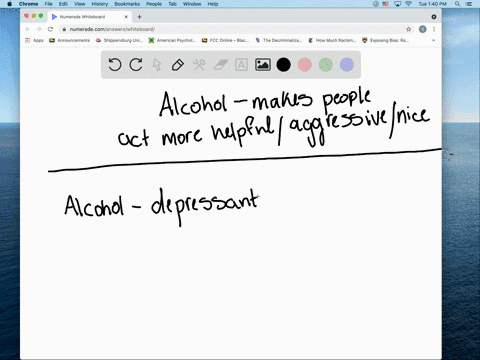 Chrome File Edit View History Bookmarks People Tab Window Help
Tue 1:40 PM
Numerade Whiteboard
numerade.com/answers/whiteboard/
Apps Announcements Shippensburg Un... American Psychol... FCC Online – Blac... The Decriminaliza... How Much Racism... Exposing Bias: Ra...
Alcohol – makes people
act more helpful/aggressive/nice
Alcohol – depressant